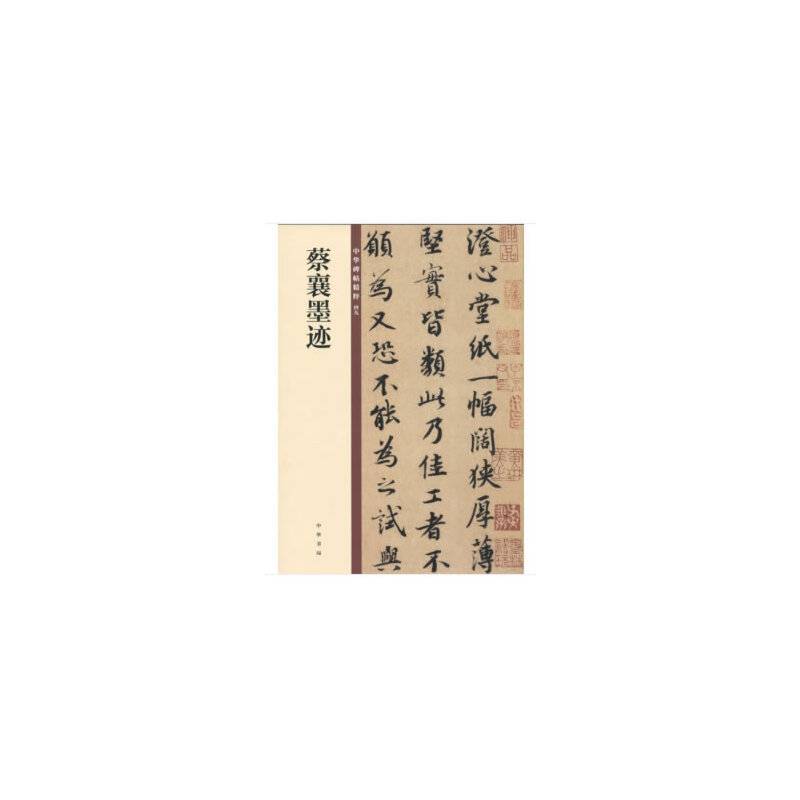 澄心堂纸一幅阔狭厚薄
坚实皆类此乃佳工者不
愿为又恐不能为之试与
中华碑帖精粹
蔡襄墨迹
中华书局